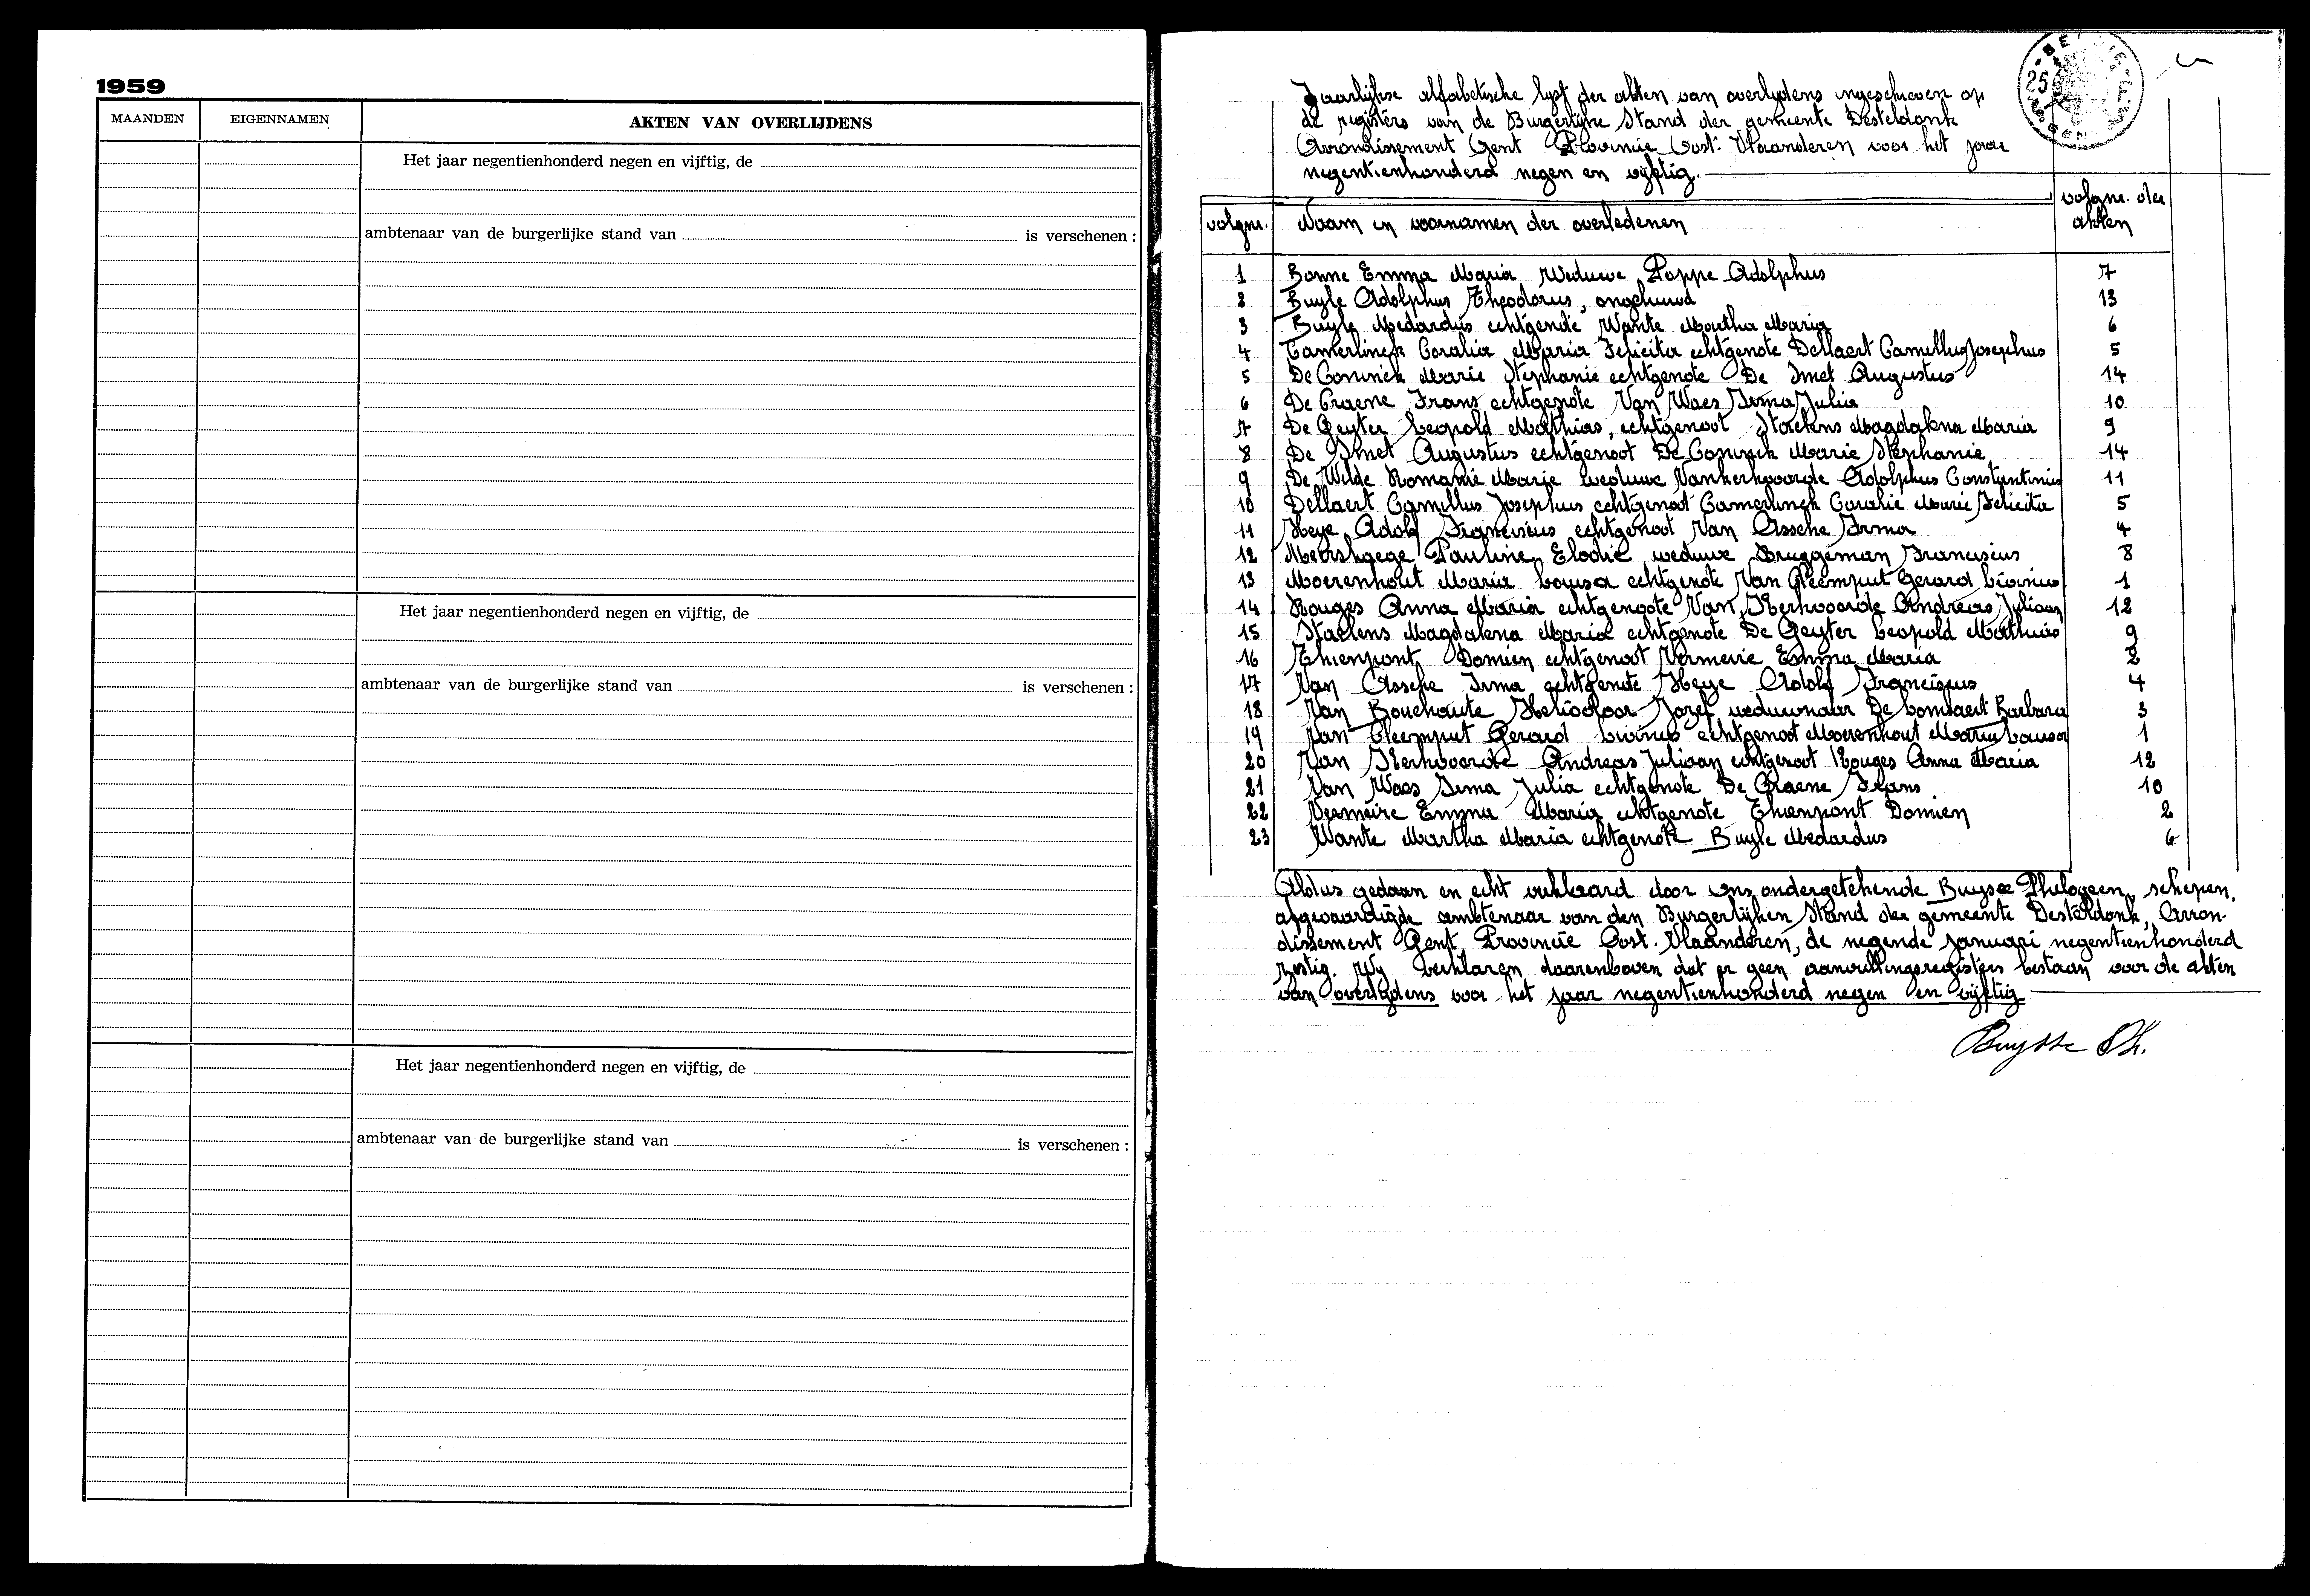 1959
MAANDEN EIGENNAMEN AKTEN VAN OVERLIJDENS
Het jaar negentienhonderd negen en vijftig, de
ambtenaar van de burgerlijke stand van is verschenen :
Het jaar negentienhonderd negen en vijftig, de
ambtenaar van de burgerlijke stand van is verschenen :
Het jaar negentienhonderd negen en vijftig, de
ambtenaar van de burgerlijke stand van is verschenen :
25
Jaarlijkse alfabetische lijst der akten van overlijdens ingeschreven op
de registers van de Burgerlijke Stand der gemeente Desteldonk
Arrondissement Gent Provincie Oost-Vlaanderen voor het jaar
negentienhonderd negen en vijftig.
volgnr. Naam en voornamen der overledenen volgnr. der akten
1 Bonne Emma Maria Weduwe Poppe Adolphus 7
2 Buyle Adolphus Theodorus, ongehuwd 13
3 Buyle Medardus echtgenote Wante Martha Maria 6
4 Camerlinck Coralia Maria Felicita echtgenote Dellaert Camillus Josephus 5
5 De Coninck Marie Stephanie echtgenote De Smet Augustus 14
6 De Craene Frans echtgenote Van Waes Irma Julia 10
7 De Geyter Leopold Matthias, echtgenoot Staelens Magdalena Maria 9
8 De Smet Augustus echtgenoot De Coninck Marie Stephanie 14
9 De Wilde Romanie Marie weduwe Vankerkvoorde Adolphus Constantinus 11
10 Dellaert Camillus Josephus echtgenoot Camerlinck Coralie Marie Felicita 5
11 Heye Adolf Franciscus echtgenoot Van Assche Irma 4
12 Meirshaege Pauline Elodie weduwe Bruggeman Franciscus 8
13 Moerenhout Maria Louisa echtgenote Van Cleemput Gerard Livinus 1
14 Rouges Anna Maria echtgenoote Van Kerkvoorde Andreas Juliaan 12
15 Staelens Magdalena Maria echtgenote De Geyter Leopold Matthias 9
16 Thienpont Damien echtgenoot Vermeire Emma Maria 2
17 Van Assche Irma echtgenote Heye Adolf Franciscus 4
18 Van Bouchaute Heliodoor Jozef weduwnaar De Barbara 3
19 Van Cleemput Gerard Livinus echtgenoot Moerenhout Maria Louisa 1
20 Van Kerkvoorde Andreas Juliaan echtgenoot Rouges Anna Maria 12
21 Van Waes Irma Julia echtgenote De Craene Frans 10
22 Vermeire Emma Maria echtgenote Thienpont Damien 2
23 Wante Martha Maria echtgenote Buyle Medardus 6
Aldus gedaan en echt verklaard door ons, ondergetekende Buysse Philogeen, schepen,
afgevaardigde ambtenaar van den Burgerlijken Stand der gemeente Desteldonk, Arron-
dissement Gent, Provincie Oost-Vlaanderen, de negende januari negentienhonderd
zestig. Wij verklaren daarenboven dat er geen aanvullingsregisters bestaan voor de akten
van overlijdens voor het jaar negentienhonderd negen en vijftig
Buysse Ph.